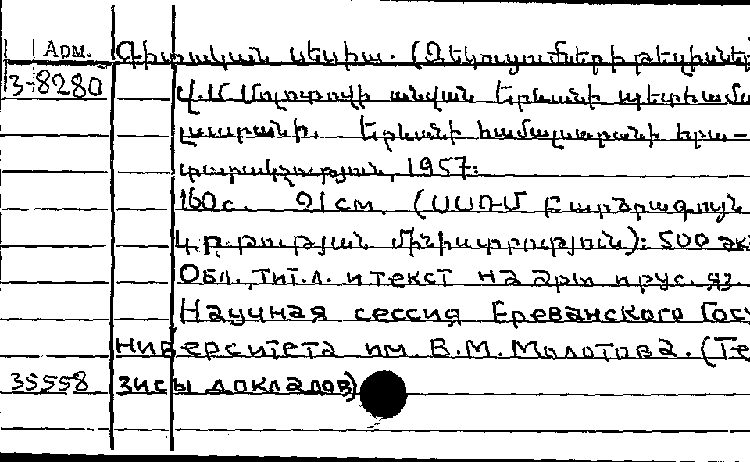 Арм. Գիտական սեսիա. (Զեկուցումների թեզիսներ
3-8280 Վ.Մ. Մոլոտովի անվան Երևանի պետհամա
լսարանի. Երևանի համալսարանի հրա-
տարակչություն, 1957:
160с. 21см. (ՍՍՌՄ Բարձրագույն
կրթության մինիստրություն): 500 эк
Обл., тит.л. и текст на арм и рус. яз.
Научная сессия Ереванского Госу
ниверситета им. В.М.Молотова. (Те
35558 зисы докладов)